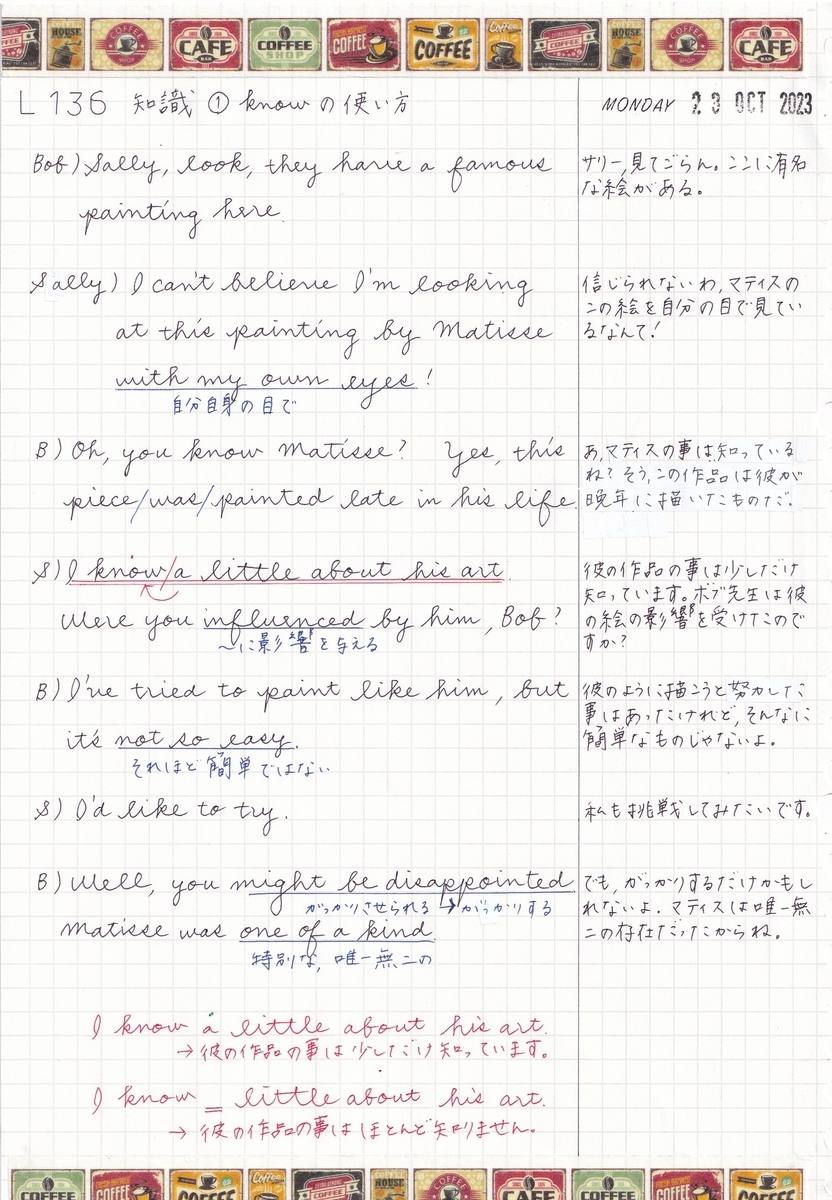 COFFEE HOUSE COFFEE SHOP CAFE BAR COFFEE SHOP COFFEE COFFEE COFFEE COFFEE HOUSE COFFEE SHOP CAFE BAR
L 136 知識 ① know の使い方
MONDAY 23 OCT 2023
Bob) Sally, look, they have a famous
painting here.
サリー,見てごらん。ここに有名
な絵がある。
Sally) I can't believe I'm looking
at this painting by Matisse
with my own eyes!
自分自身の目で
信じられないわ,マティスの
この絵を自分の目で見てい
るなんて!
B) Oh, you know Matisse? Yes, this
piece/was/painted late in his life.
あ,マティスの事は知っている
ね?そう,この作品は彼が
晩年に描いたものだ。
S) I know/a little about his art.
Were you influenced by him, Bob?
〜に影響を与える
彼の作品の事は少しだけ
知っています。ボブ先生は彼
の絵の影響を受けたので
すか?
B) I've tried to paint like him, but
it's not so easy.
それほど簡単ではない
彼のように描こうと努力した
事はあったけれど,そんなに
簡単なものじゃないよ。
S) I'd like to try.
私も挑戦してみたいです。
B) Well, you might be disappointed
がっかりさせられる → がっかりする
Matisse was one of a kind.
特別な,唯一無二の
でも,がっかりするだけかもし
れないよ.マティスは唯一無
二の存在だったからね。
I know a little about his art.
→ 彼の作品の事は少しだけ知っています。
I know = little about his art.
→ 彼の作品の事はほとんど知りません。
COFFEE SHOP COFFEE COFFEE Coffee COFFEE HOUSE COFFEE CAFE COFFEE COFFEE COFFEE